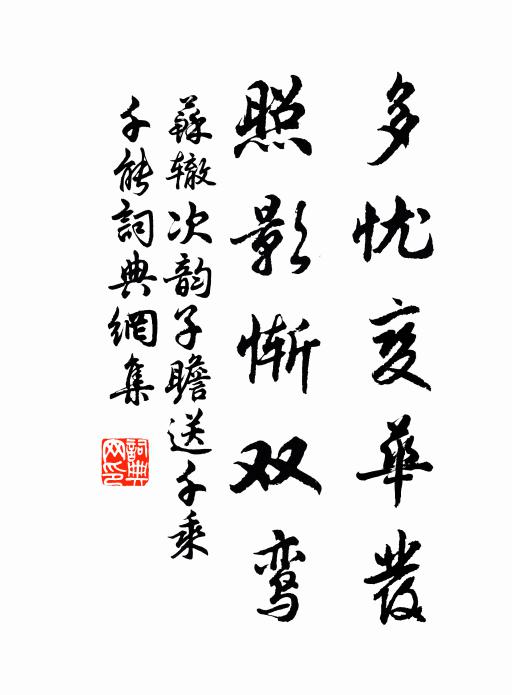 多忧变华发
照影惭双鸾
蘇辙次韵子瞻送千乘
千能詞典網集
詞典网印